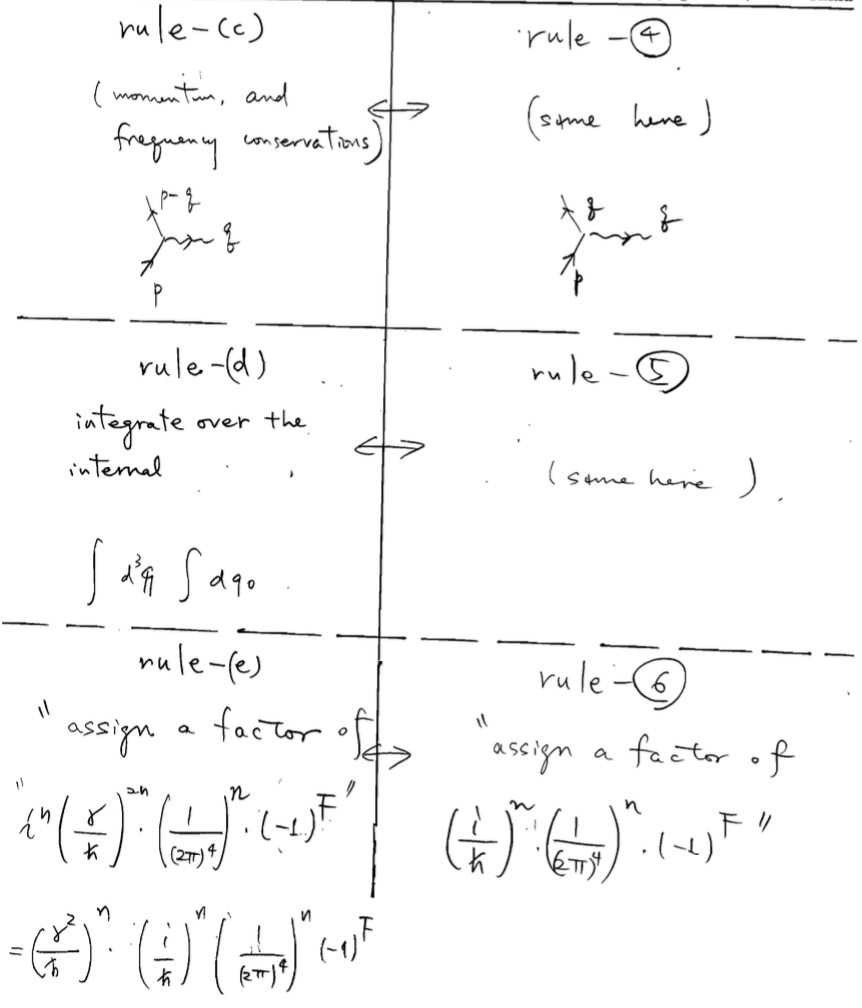 rule-(c)
(momentum, and
frequency conservations)
p-q
q
p
rule-④
(same here)
q
q
p
rule-(d)
integrate over the
internal
∫ d³q ∫ dq₀
rule-⑤
(same here).
rule-(e)
"assign a factor of
"iⁿ (γ/ħ)²ⁿ · (1/(2π)⁴)ⁿ · (-1)^F"
= (γ²/ħ)ⁿ · (i/ħ)ⁿ (1/(2π)⁴)ⁿ (-1)^F
rule-⑥
"assign a factor of
(i/ħ)ⁿ · (1/(2π)⁴)ⁿ · (-1)^F"